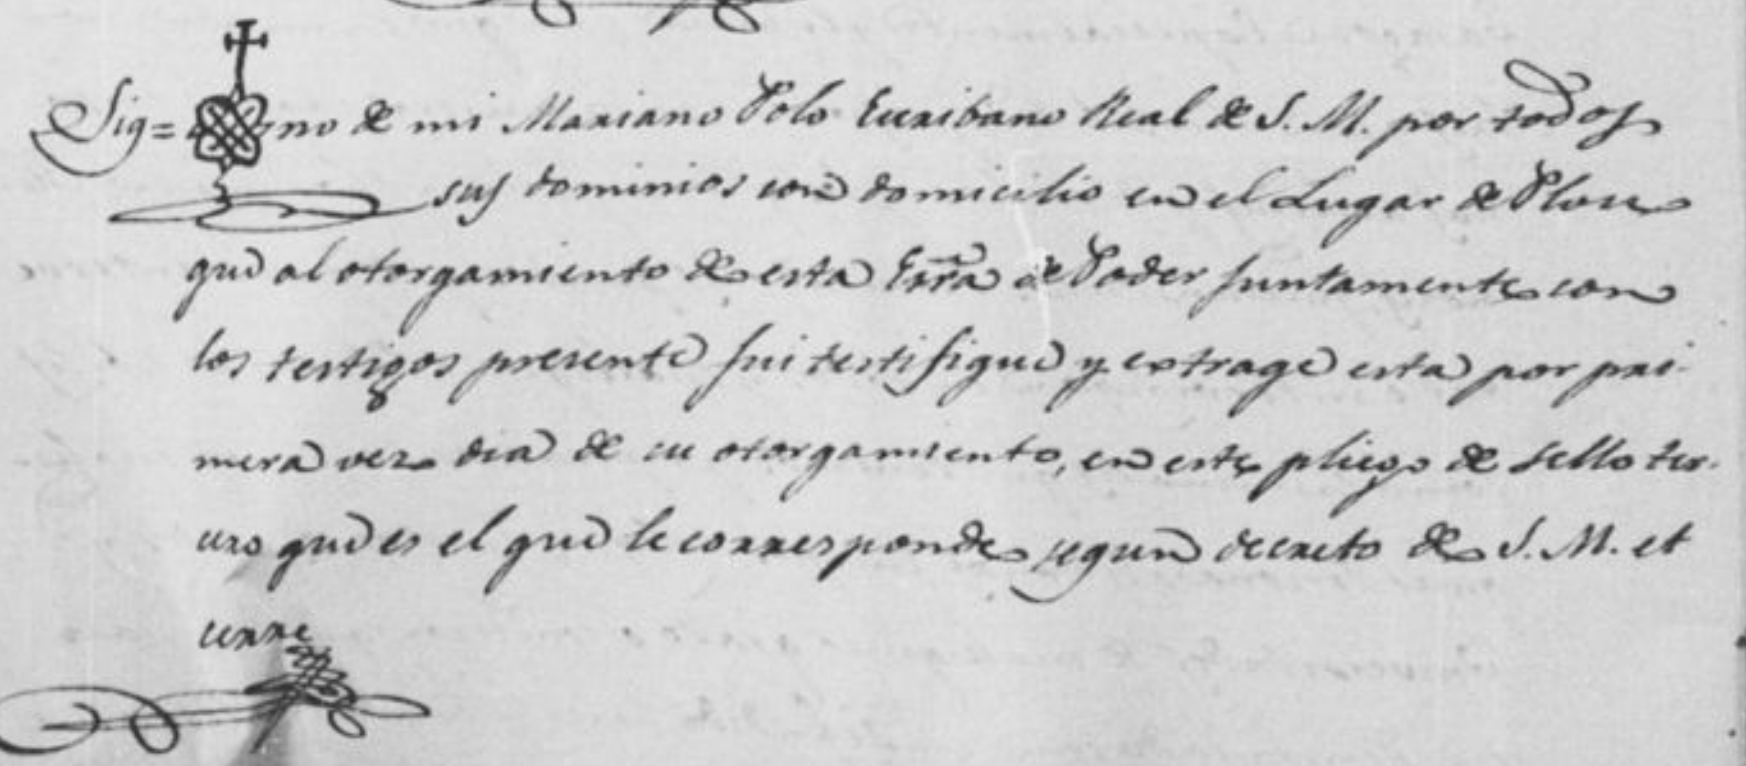 Sig=no de mi Mariano Polo Escribano Real de S. M. por todos
sus dominios con domicilio en el Lugar de Plou
que al otorgamiento de esta Essra de Poder juntamente con
los testigos presente fui testifique y extrage esta por pri-
mera vez dia de su otorgamiento, en este pliego de sello ter-
cero que es el que le corresponde segun decreto de S. M. et
cerre